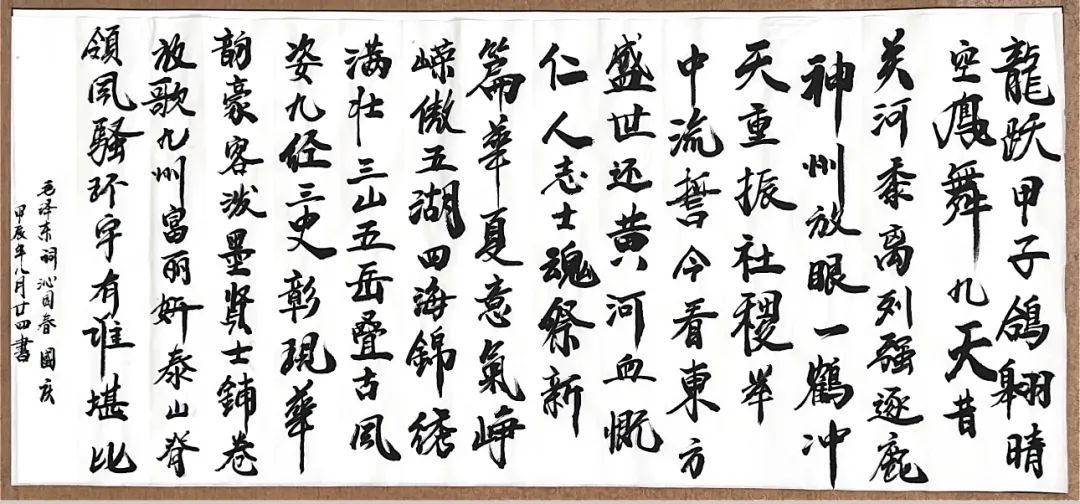 龍跃甲子鸽翱晴
空鳳舞九天昔
关河黍离列强逐鹿
神州放眼一鶴冲
天重振社稷举
中流誓今看東方
盛世还黄河血慨
仁人志士魂祭新
篇華夏意氣峥
嵘傲五湖四海錦绣
满壮三山五岳叠古风
姿九经三史彰現華
韵豪客泼墨贤士铺卷
放歌九州富丽妍泰山脊
領风骚环宇有谁堪比
毛泽东词沁园春國庆
甲辰年八月廿四書